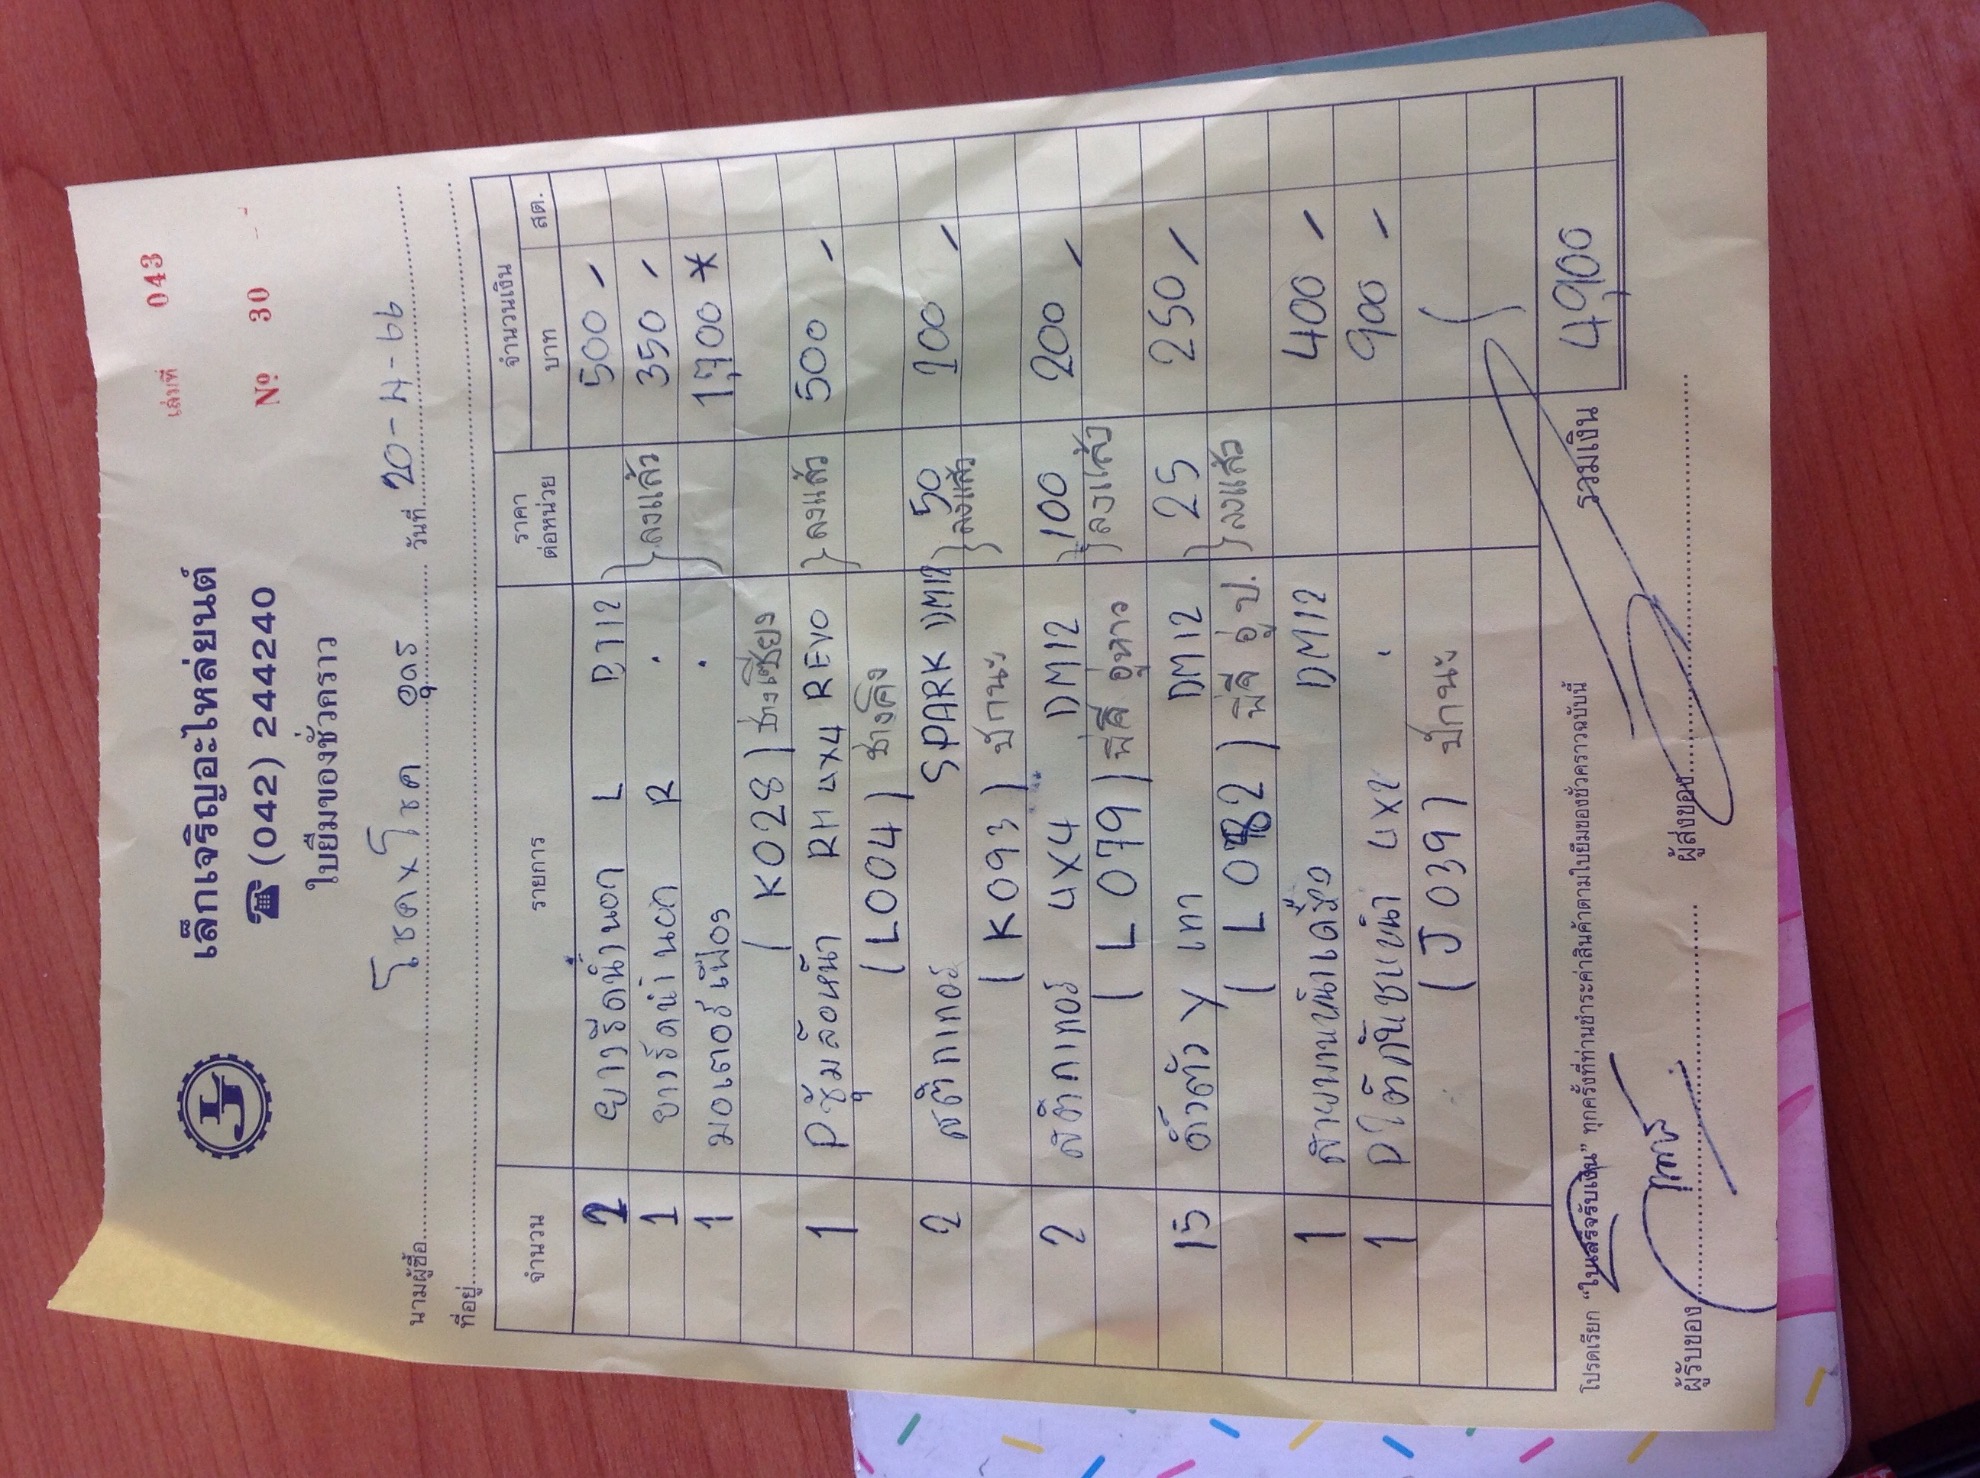 เล่มที่ 043
เล็กเจริญอะไหล่ยนต์
☎ (042) 244240
Nº 30
ใบยืมของชั่วคราว
นามผู้ซื้อ โชคxโชค อุดร วันที่ 20-4-66
ที่อยู่
จำนวน รายการ ราคาต่อหน่วย จำนวนเงิน บาท สต.
2 ยางรีดน้ำนอก L 500 -
1 ยางรีดน้ำนอก R . } ลงแล้ว 350 -
1 มอเตอร์เฟือง . 1,700
(K028) ช่างเซียง
1 Pซุ้มล้อหน้า RH 4x4 REVO } ลงแล้ว 500 -
(L004)
2 สติกเกอร์ SPARK DM12 50 100 -
(K093) ปกนะ } ลงแล้ว
2 สติกเกอร์ 4x4 DM12 100 200 -
(L079) } ลงแล้ว
15 Y เทา DM12 25 250 -
} ลงแล้ว
1 DM12 400 -
1 4x2 . 900 -
(J039) ปกนะ
รวมเงิน 4,900
โปรดเรียก “ใบเสร็จรับเงิน” ทุกครั้งที่ท่านชำระค่าสินค้าตามใบยืมของชั่วคราวฉบับนี้
ผู้รับของ ผู้ส่งของ